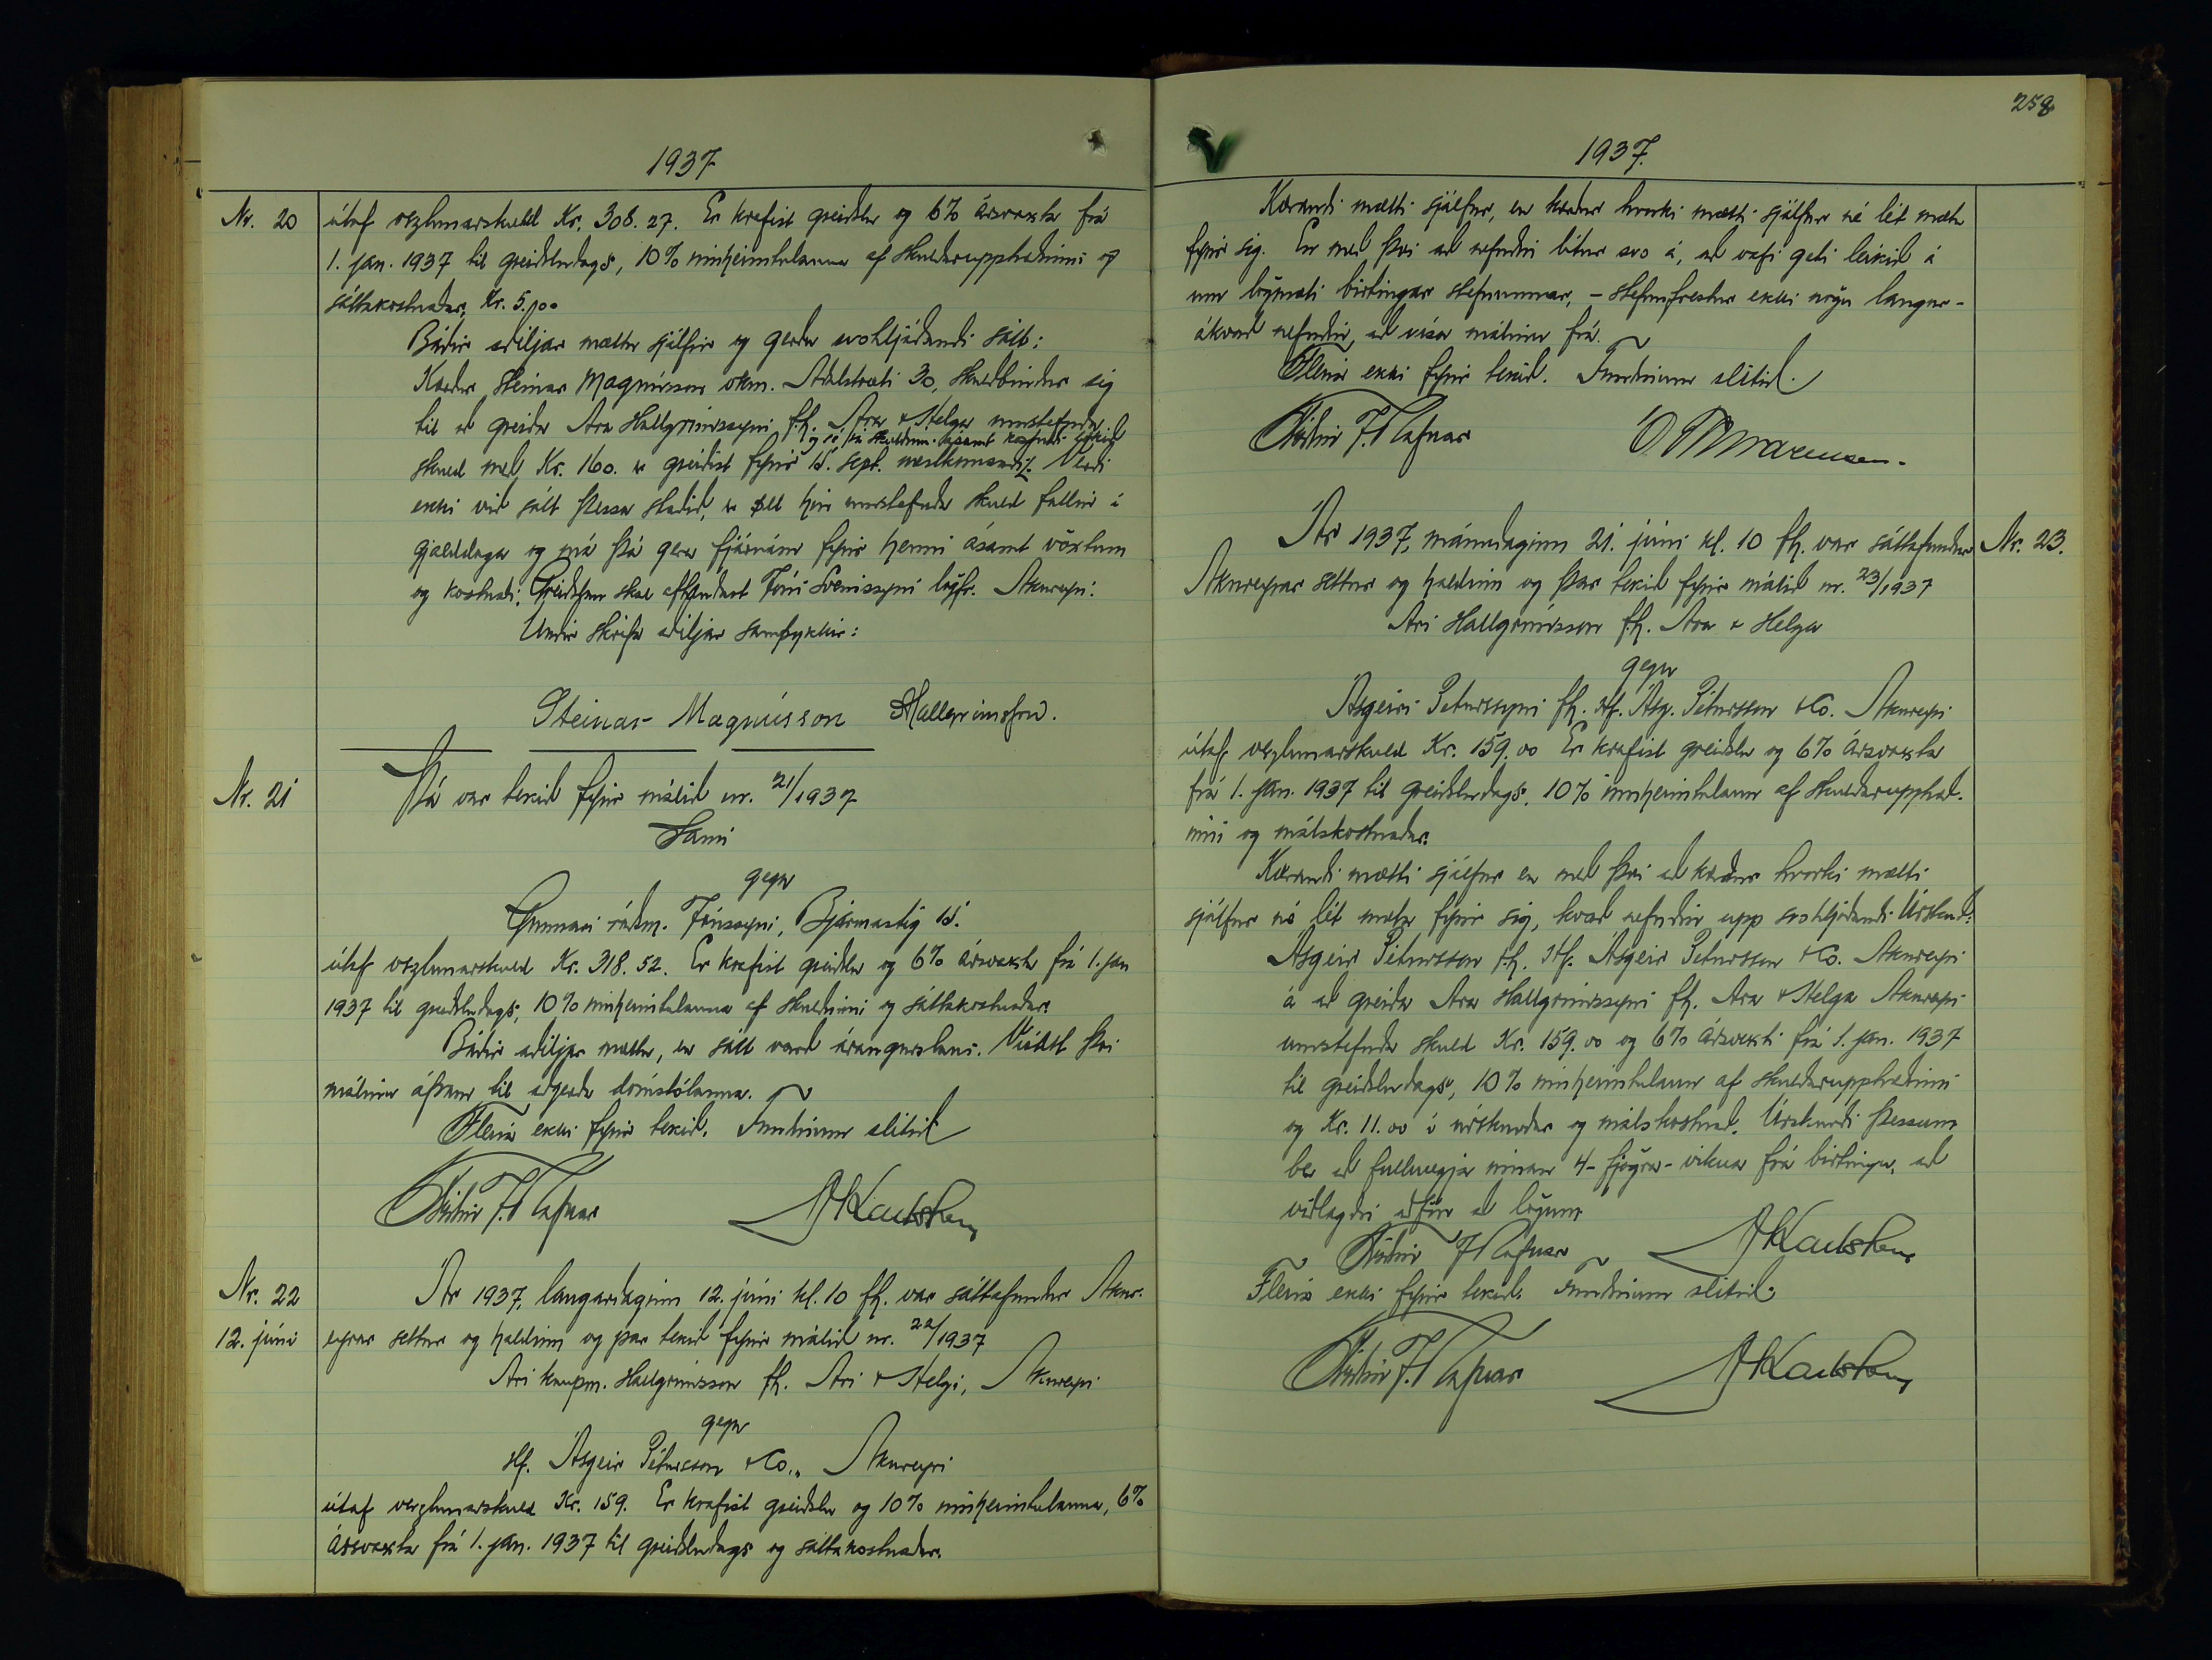 1937
Nr. 20
útaf verzlunarskuld Kr. 308.27. Er krafist greiðslu og 6% ársvaxta frá
1. jan. 1937 til greiðsludags, 10% innheimtulauna af skuldarupphæðinni og
sáttakostnaðar, Kr. 5.00
Báðir aðiljar mættu sjálfir og gerðu svohljóðandi sátt:
Kærður Steinar Magnússon ökm. Aðalstræti 30, skuldbindur sig
til að greiða Ara Hallgrímssyni f.h. Ara & Helga umstefnda
og sé þá skuldin ásamt kostnaði lokið
skuld með Kr. 160. er greiðist fyrir 15. sept. næstkomandi. Verði
ekki við sátt þessa staðið, er öll hin umstefnda skuld fallin í
gjalddaga og má þá gera fjárnám fyrir henni ásamt vöxtum
og kostnaði. Greiðslan skal afhendast Jóni Sveinssyni lögfr. Akureyri.
Undir skrifa aðiljar samþykkir:
Steinar Magnússon Hallgrímsson.
Nr. 21
Þá var tekið fyrir málið nr. 21/1937
Sami
gegn
Gunnari ráðm. Jónssyni, Bjarmastíg 15.
útaf verzlunarskuld Kr. 318.52. Er krafist greiðslu og 6% ársvaxta frá 1. jan
1937 til greiðsludags, 10% innheimtulauna af skuldinni og sáttakostnaðar.
Báðir aðiljar mættu, en sátt varð árangurslaus. Vísast því
málinu áfram til aðgerða dómstólanna.
Fleira ekki fyrir tekið. Fundinum slitið
Friðrik J. Rafnar
Nr. 22
12. júní
Ár 1937, laugardaginn 12. júní kl. 10 fh. var sáttafundur Akur-
eyrar settur og haldinn og þar tekið fyrir málið nr. 22/1937
Ari kaupm. Hallgrímsson fh. Ari & Helgi, Akureyri
gegn
Hf. Ásgeir Pétursson & Co., Akureyri
útaf verzlunarskuld Kr. 159. Er krafist greiðslu og 10% innheimtulauna, 6%
ársvaxta frá 1. jan. 1937 til greiðsludags og sáttakostnaðar.
258
1937.
Kærandi mætti sjálfur, en kærður hvorki mætti sjálfur né lét mæta
fyrir sig. En með því að nefndin lítur svo á, að vafi geti leikið á
um lögmæti birtingar stefnunnar, - stefnufrestur ekki nógu langur -
ákvað nefndin, að vísa málinu frá.
Fleira ekki fyrir tekið. Fundinum slitið.
Friðrik J. Rafnar
Nr. 23.
Ár 1937, mánudaginn 21. júní kl. 10 fh. var sáttafundur
Akureyrar settur og haldinn og þar tekið fyrir málið nr. 23/1937
Ari Hallgrímsson f.h. Ara & Helga
gegn
Ásgeiri Péturssyni fh. Hf. Ásg. Pétursson & Co. Akureyri
útaf verzlunarskuld Kr. 159.00 Er krafist greiðslu og 6% ársvaxta
frá 1. jan. 1937 til greiðsludags, 10% innheimtulaun af skuldarupphæð-
inni og málskostnaðar.
Kærandi mætti sjálfur en með því að kærður hvorki mætti
sjálfur né lét mæta fyrir sig, kvað nefndin upp svohljóðandi Úrskurð:
Ásgeir Pétursson f.h. Hf. Ásgeir Pétursson & Co. Akureyri
á að greiða Ara Hallgrímssyni fh. Ara & Helga Akureyri
umstefnda skuld Kr. 159.00 og 6% ársvexti frá 1. jan. 1937
til greiðsludags, 10% innheimtulaun af skuldarupphæðinni
og Kr. 11.00 í úrskurðar og málskostnað. Úrskurði þessum
ber að fullnægja innan 4 - fjögra - vikna frá birtingu, að
viðlagðri aðför að lögum
Friðrik J Rafnar
Fleira ekki fyrir tekið. Fundinum slitið.
Friðrik J. Rafnar